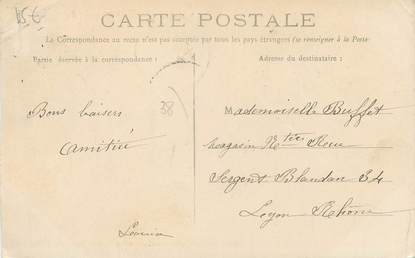 15€
CARTE POSTALE
La Correspondance au recto n'est pas acceptée par tous les pays étrangers (se renseigner à la Poste)
Partie éservée à la correspondance :
Adresse du destinataire :
38
Bons baisers
amitié
Mademoiselle Buffet
magasin Rue
Sergent Blandan 34
Lyon Rhône